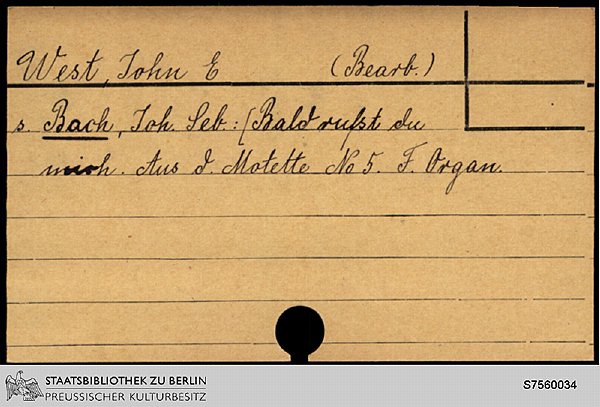 West, John E (Bearb.)
s. Bach, Joh. Seb.: [Bald rufst du
mich. Aus d. Motette No 5. F. Organ.
STAATSBIBLIOTHEK ZU BERLIN
PREUSSISCHER KULTURBESITZ
S7560034